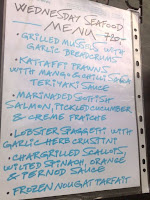 WEDNESDAY SEAFOOD
MENU 720-
• GRILLED MUSSELS WITH
GARLIC BREADCRUMBS
• KATTAFFI PRAWNS
WITH MANGO & CHILLI SALSA
TERIYAKI SAUCE
• MARINADED SCOTTISH
SALMON, PICKLED CUCUMBER
& CREME FRAICHE
• LOBSTER SPAGETTI WITH
GARLIC-HERB CROSTINI
• CHARGRILLED SCALLOTS,
WILTED SPINACH, ORANGE
& PERNOD SAUCE
• FROZEN NOUGHT PARFAIT